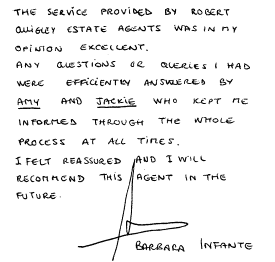 THE SERVICE PROVIDED BY ROBERT
QUIGLEY ESTATE AGENTS WAS IN MY
OPINION EXCELLENT.
ANY QUESTIONS OR QUERIES I HAD
WERE EFFICIENTLY ANSWERED BY
AMY AND JACKIE WHO KEPT ME
INFORMED THROUGH THE WHOLE
PROCESS AT ALL TIMES.
I FELT REASSURED AND I WILL
RECOMMEND THIS AGENT IN THE
FUTURE.
BARBARA INFANTE